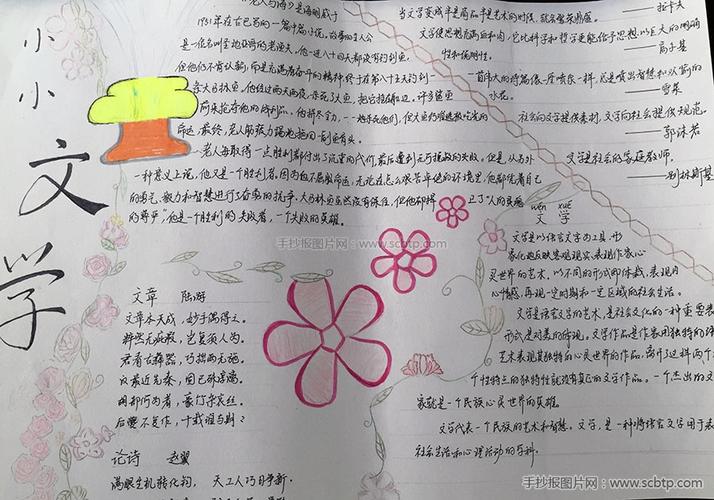 小小文学
《老人与海》是海明威于
1951年在古巴写的一篇中篇小说,故事的主人公
是一名叫圣地亚哥的老渔夫,他一连八十四天都没有钓到鱼,
但他仍不肯认输,而是充满着奋斗的精神,终于在第八十五天钓到一
条大马林鱼,他经过两天两夜,杀死了大鱼,把它拴在船边,许多鲨鱼
前来抢夺他的战利品,他拼尽全力,一一地杀死他们,但大鱼仍难逃被吃光的
命运,最终,老人筋疲力竭地拖回一副鱼骨头。
老人每取得一点胜利都付出了沉重的代价,最后遭到无可挽救的失败。但是,从另外
一种意义上说,他又是一个胜利者,因为他不屈服命运,无论在怎么艰苦卓绝的环境里,他都凭着自己
的勇气、毅力和智慧进行了奋勇的抗争。大马林鱼虽然没有保住,但他却捍卫了“人的灵魂
的尊严”他是一个胜利的失败者,一个失败的英雄。
当文学变成半是商品半是艺术的时候,就会繁荣鼎盛。
——拉卡夫
文学使思想充满血和肉,它比科学和哲学更能给予思想以巨大的明确
性和说明性。
——高尔基
一首伟大的诗篇像一座喷泉一样,总是喷出智慧和欢愉的
水花。
——雪莱
社会向文学提供素材,文学向社会提供规范。
——郭沫若
文学是社会的家庭教师。
——别林斯基
wén xué
文 学
文学是以语言文字为工具,形
象化地反映客观现实、表现作家心
灵世界的艺术,以不同的形式即体裁,表现内
心情感,再现一定时期和一定区域的社会生活。
文学是语言文字的艺术,是社会文化的一种重要表
形式,是对美的体现。文学作品是作家用独特的语
艺术表现其独特的心灵世界的作品,离开了这样两个
个性特点的独特性就没有真正的文学作品。一个杰出的文
家就是一个民族心灵世界的英雄。
文学代表一个民族的艺术和智慧。文学,是一种将语言文字用于表
社会生活和心理活动的学科。
文章 陆游
文章本天成,妙手偶得之。
粹然无疵瑕,岂复须人为。
君看古彝器,巧拙两无施。
汉最近先秦,固已殊淳漓。
胡部何为者,豪竹杂哀丝。
后夔不复作,千载谁与期?
论诗 赵翼
满眼生机转化钧,天工人巧日争新。
手抄报图片网:www.scbtp.com
手抄报图片网:www.scbtp.com